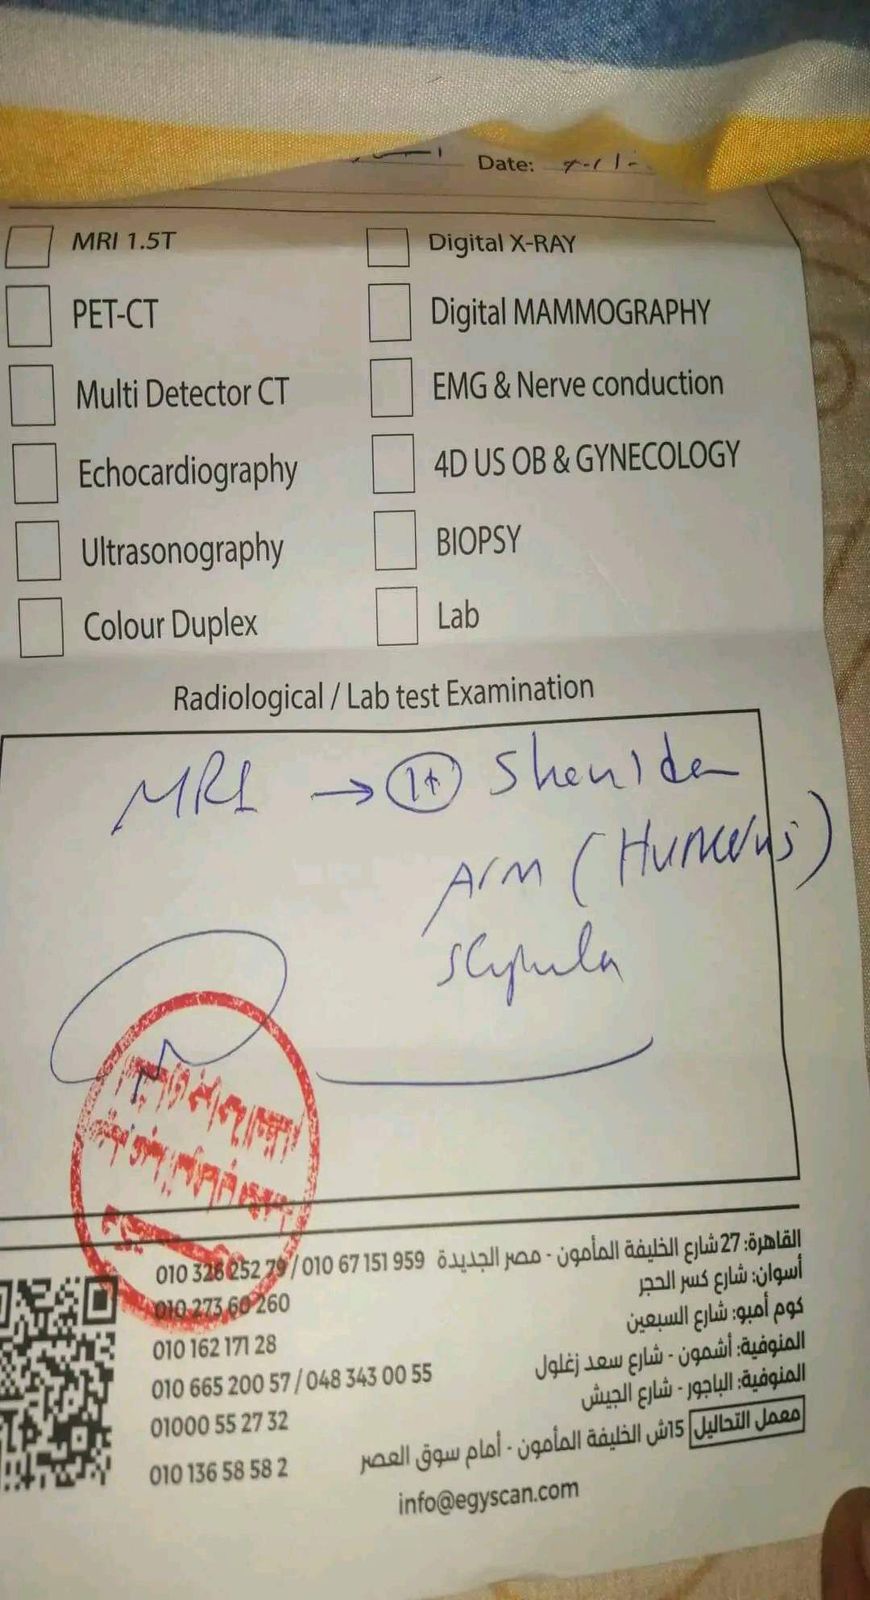 Date:
MRI 1.5T
Digital X-RAY
PET-CT
Digital MAMMOGRAPHY
Multi Detector CT
EMG & Nerve conduction
Echocardiography
4D US OB & GYNECOLOGY
Ultrasonography
BIOPSY
Colour Duplex
Lab
Radiological / Lab test Examination
MRI → Shoulder
Arm (Humerus)
scapula
القاهرة: 27 شارع الخليفة المأمون - مصر الجديدة 010 67 151 959 / 010 328 252 79
أسوان: شارع كسر الحجر 010 273 60 260
كوم أمبو: شارع السبعين 010 162 171 28
المنوفية: أشمون - شارع سعد زغلول 010 665 200 57 / 048 343 00 55
المنوفية: الباجور - شارع الجيش 01000 55 27 32
معمل التحاليل 15ش الخليفة المأمون - أمام سوق العصر 010 136 58 58 2
info@egyscan.com